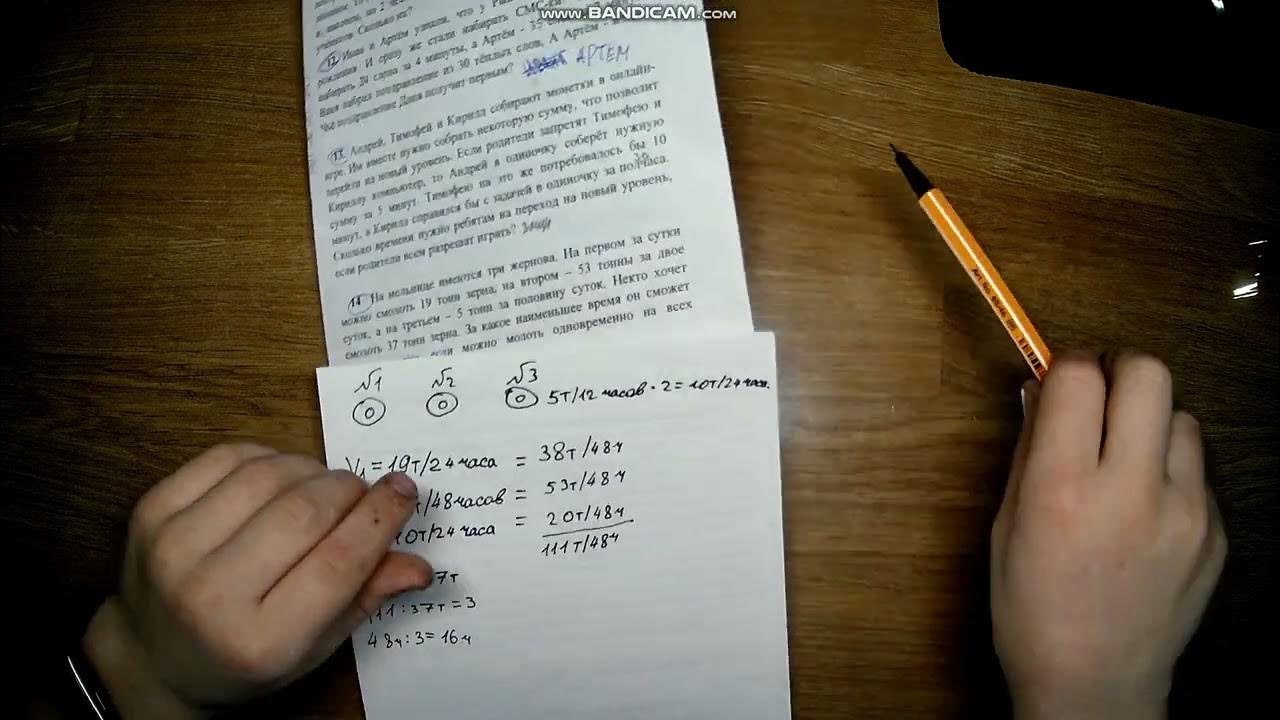 www.BANDICAM.com
12. Иван и Артём узнали, что у
рождения. И сразу же стали набирать СМС-
набирать 24 слова за 4 минуты, а Артём - 35
Ваня набрал поздравление из 30 тёплых слов, А Артём -
Чьё поздравление Даня получит первым? АРТЕМ
13. Андрей, Тимофей и Кирилл собирают монетки в онлайн-
игре. Им вместе нужно собрать некоторую сумму, что позволит
перейти на новый уровень. Если родители запретят Тимофею и
Кириллу компьютер, то Андрей в одиночку соберёт нужную
сумму за 5 минут. Тимофею на это же потребовалось бы 10
минут, а Кирилл справился бы с задачей в одиночку за полчаса.
Сколько времени нужно ребятам на переход на новый уровень,
если родители всем разрешат играть?
14. На мельнице имеются три жернова. На первом за сутки
можно смолоть 19 тонн зерна, на втором – 53 тонны за двое
суток, а на третьем – 5 тонн за половину суток. Некто хочет
смолоть 37 тонн зерна. За какое наименьшее время он сможет
если можно молоть одновременно на всех
№1 №2 №3
5т/12 часов · 2 = 10т/24 часа.
V1 = 19т/24 часа = 38т/48ч
т/48 часов = 53т/48ч
10т/24 часа = 20т/48ч
111т/48ч
7т
111 : 37т = 3
48ч : 3 = 16ч